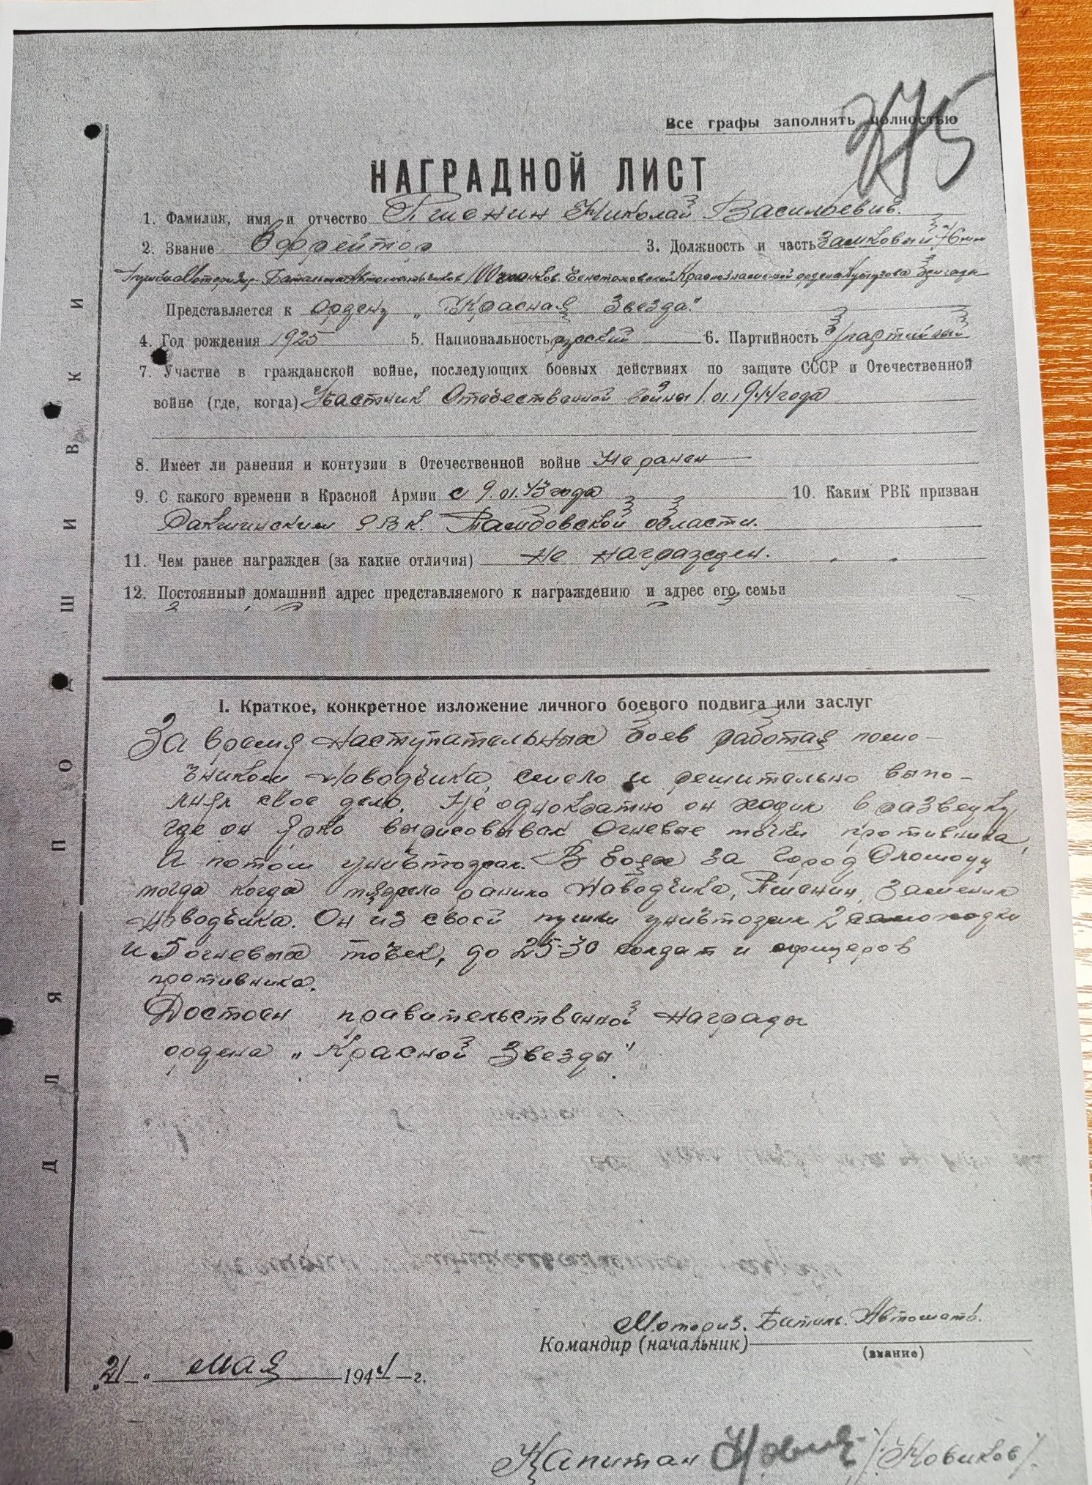 275
Все графы заполнять полностью
НАГРАДНОЙ ЛИСТ
1. Фамилия, имя и отчество Пшенин Николай Васильевич.
2. Звание Ефрейтор 3. Должность и часть Замковый 76мм
пушки Моторизр. Батальона Автоматчиков Ченстоховской Краснознаменной ордена Кутузова Бригады
Представляется к ордену „Красная Звезда"
4. Год рождения 1925 5. Национальность русский 6. Партийность б/партийный
7. Участие в гражданской войне, последующих боевых действиях по защите СССР и Отечественной
войне (где, когда) Участник Отечественной войны 1.01.1944 года
8. Имеет ли ранения и контузии в Отечественной войне Не ранен
9. С какого времени в Красной Армии с 9.01.43 года 10. Каким РВК призван
РВК. Тамбовской области.
11. Чем ранее награжден (за какие отличия) Не награжден.
12. Постоянный домашний адрес представляемого к награждению и адрес его семьи
ДЛЯ ПОДШИВКИ
I. Краткое, конкретное изложение личного боевого подвига или заслуг
За время наступательных боев работая помо-
щником наводчика, смело и решительно выпо-
лнял свое дело. Не однократно он ходил в разведку,
где он ярко вырисовывал огневые точки противника,
а потом уничтожал. В боях за город Оломоуц
тогда когда тяжело ранило наводчика, Пшенин, заменил
наводчика. Он из своей пушки уничтожил 2 самоходки
и 5 огневых точек, до 25-30 солдат и офицеров
противника.
Достоен правительственной награды
ордена „Красной Звезды"
Моториз. Батальон. Автомат.
Командир (начальник)
(звание)
„21" мая 194 г.
Капитан Новиков /Новиков/.